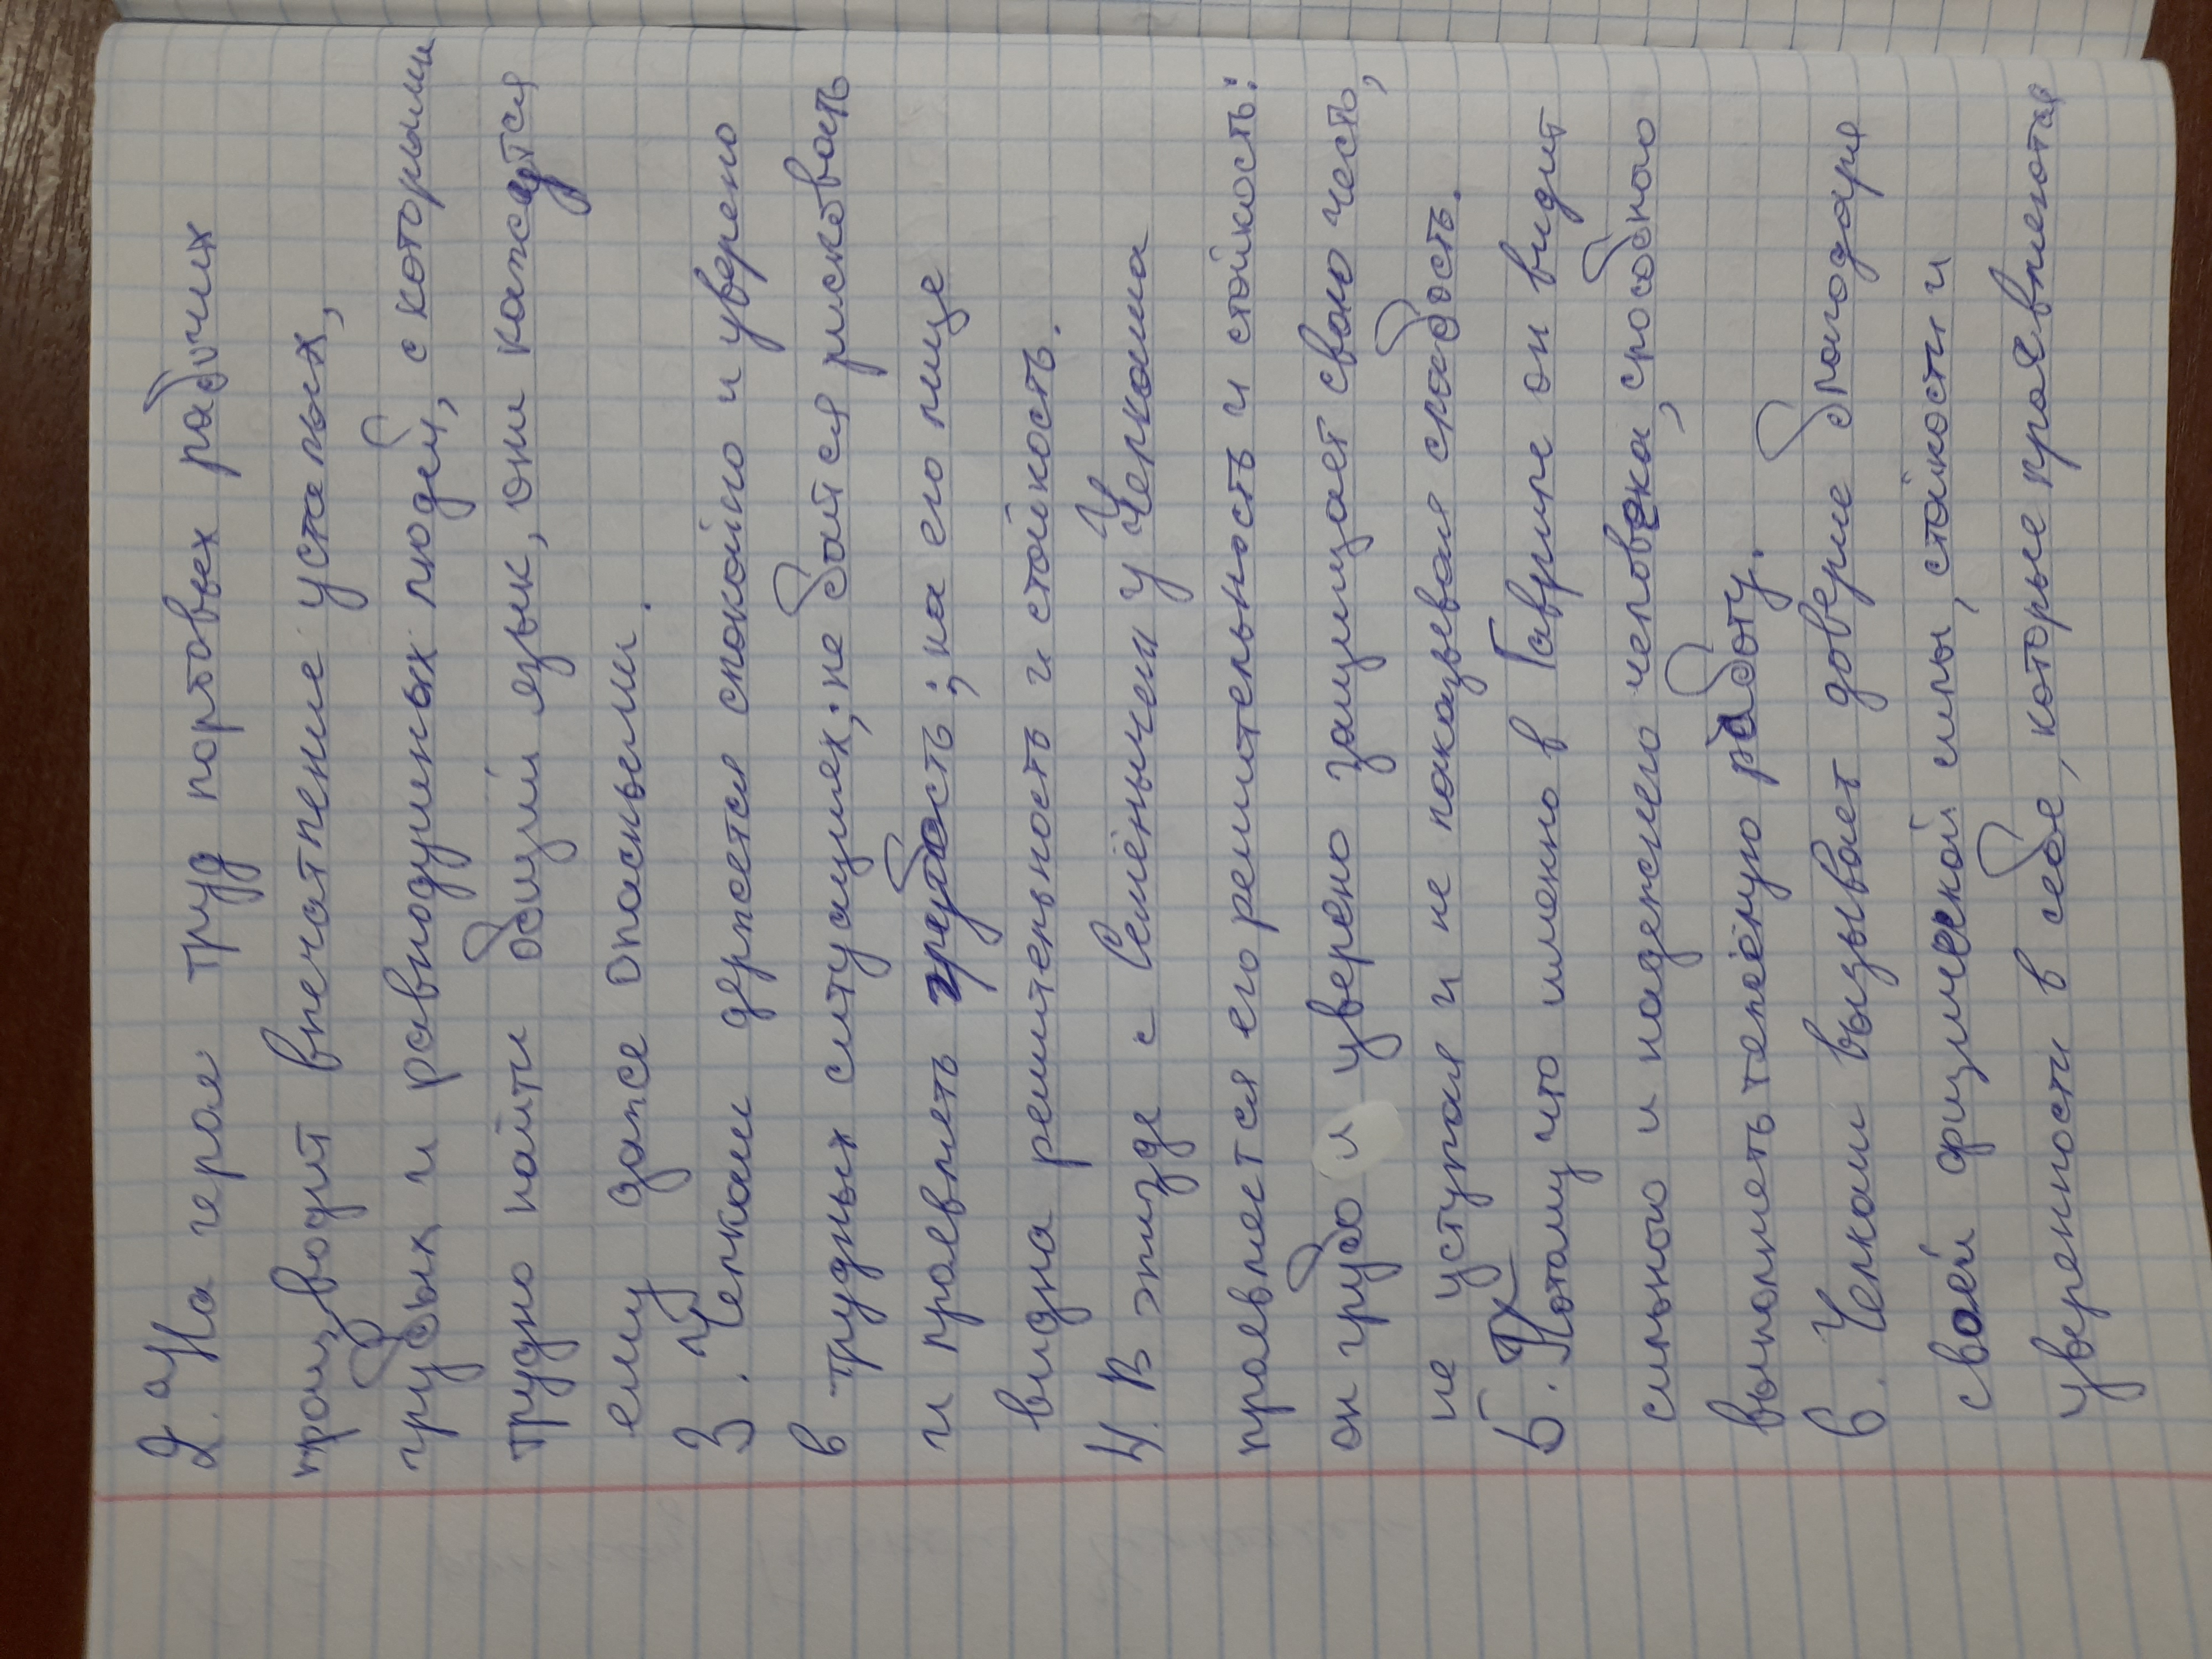 2. На героя труд портовых рабочих
производит впечатление усталых,
грубых и равнодушных людей, с которыми
трудно найти общий язык, они кажутся
ему даже опасными.
3. Челкаш держется спокойно и уверено
в трудных ситуациях; не боится рисковать
и проявлять грубость; на его лице
видна решительность и стойкость.
4. В эпизде с Семёнычем у Челкаша
проявляется его решительность и стойкость:
он грубо и уверено защищает свою честь,
не уступая и не показывая слабость.
5. Потому что именно в Гавриле он видит
сильного и надежного человека, способного
выполнять тяжёлую работу.
6. Челкаш вызывает доверие благодаря
своей физической силы, стойкости и
уверенности в себе, которые проявляются